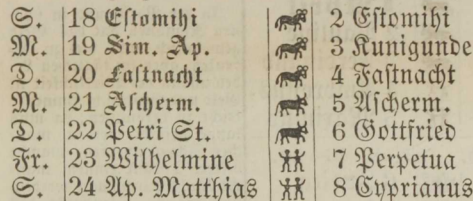 S. 18 Estomihi 2 Estomihi
M. 19 Sim. Ap. 3 Kunigunde
D. 20 Fastnacht 4 Fastnacht
M. 21 Ascherm. 5 Ascherm.
D. 22 Petri St. 6 Gottfried
Fr. 23 Wilhelmine 7 Perpetua
S. 24 Ap. Matthias 8 Cyprianus